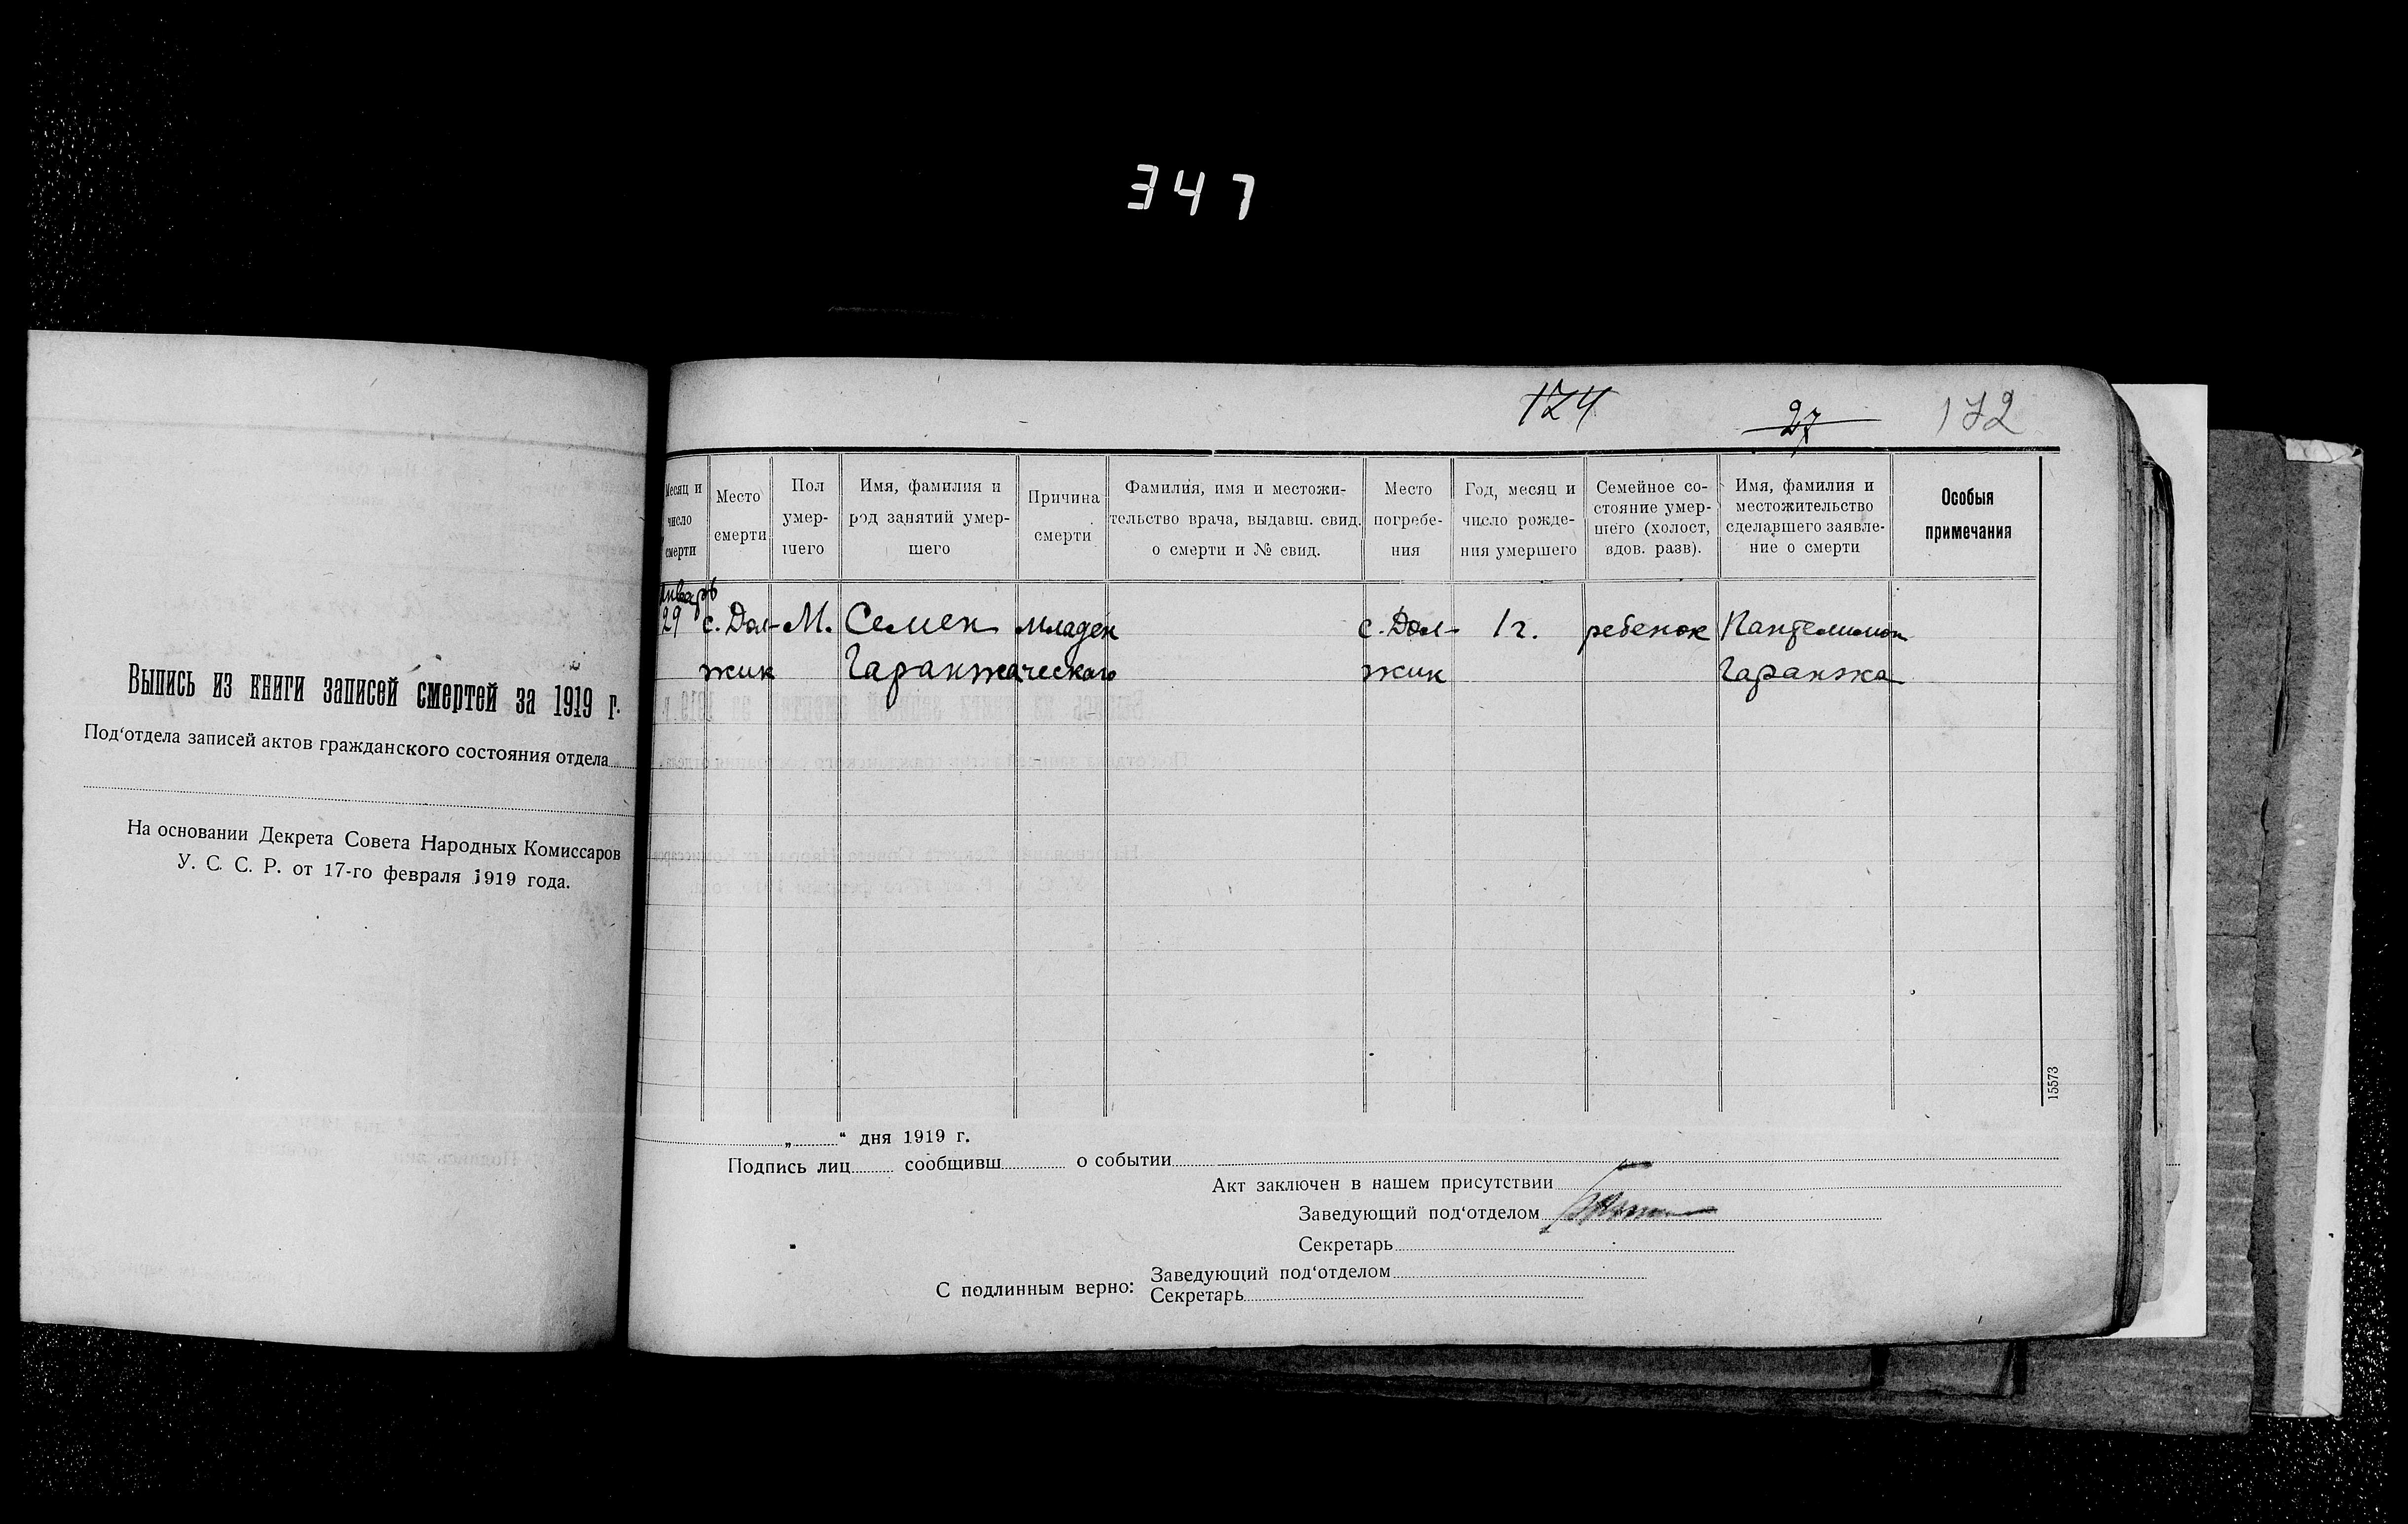 347
174
27
172
Выпись из книги записей смертей за 1919 г.
Под‘отдела записей актов гражданского состояния отдела
На основании Декрета Совета Народных Комиссаров
У. С. С. Р. от 17-го февраля 1919 года.
Месяц и число смерти
Место смерти
Пол умер-шего
Имя, фамилия и род занятий умер-шего
Причина смерти
Фамилия, имя и местожи-тельство врача, выдавш. свид. о смерти и № свид.
Место погребе-ния
Год, месяц и число рожде-ния умершего
Семейное со-стояние умер-шего (холост, вдов. разв).
Имя, фамилия и местожительство сделавшего заявле-ние о смерти
Особыя примечания
Январь
29 с. Дол- М. Семен младен с. Дол- 1 г. ребенок Пантелимон
жик Гаранжа ческаго жик Гаранжа
15573
„ “ дня 1919 г.
Подпись лиц сообщивш о событии
Акт заключен в нашем присутствии
Заведующий под‘отделом
Секретарь
С подлинным верно:
Заведующий под‘отделом
Секретарь